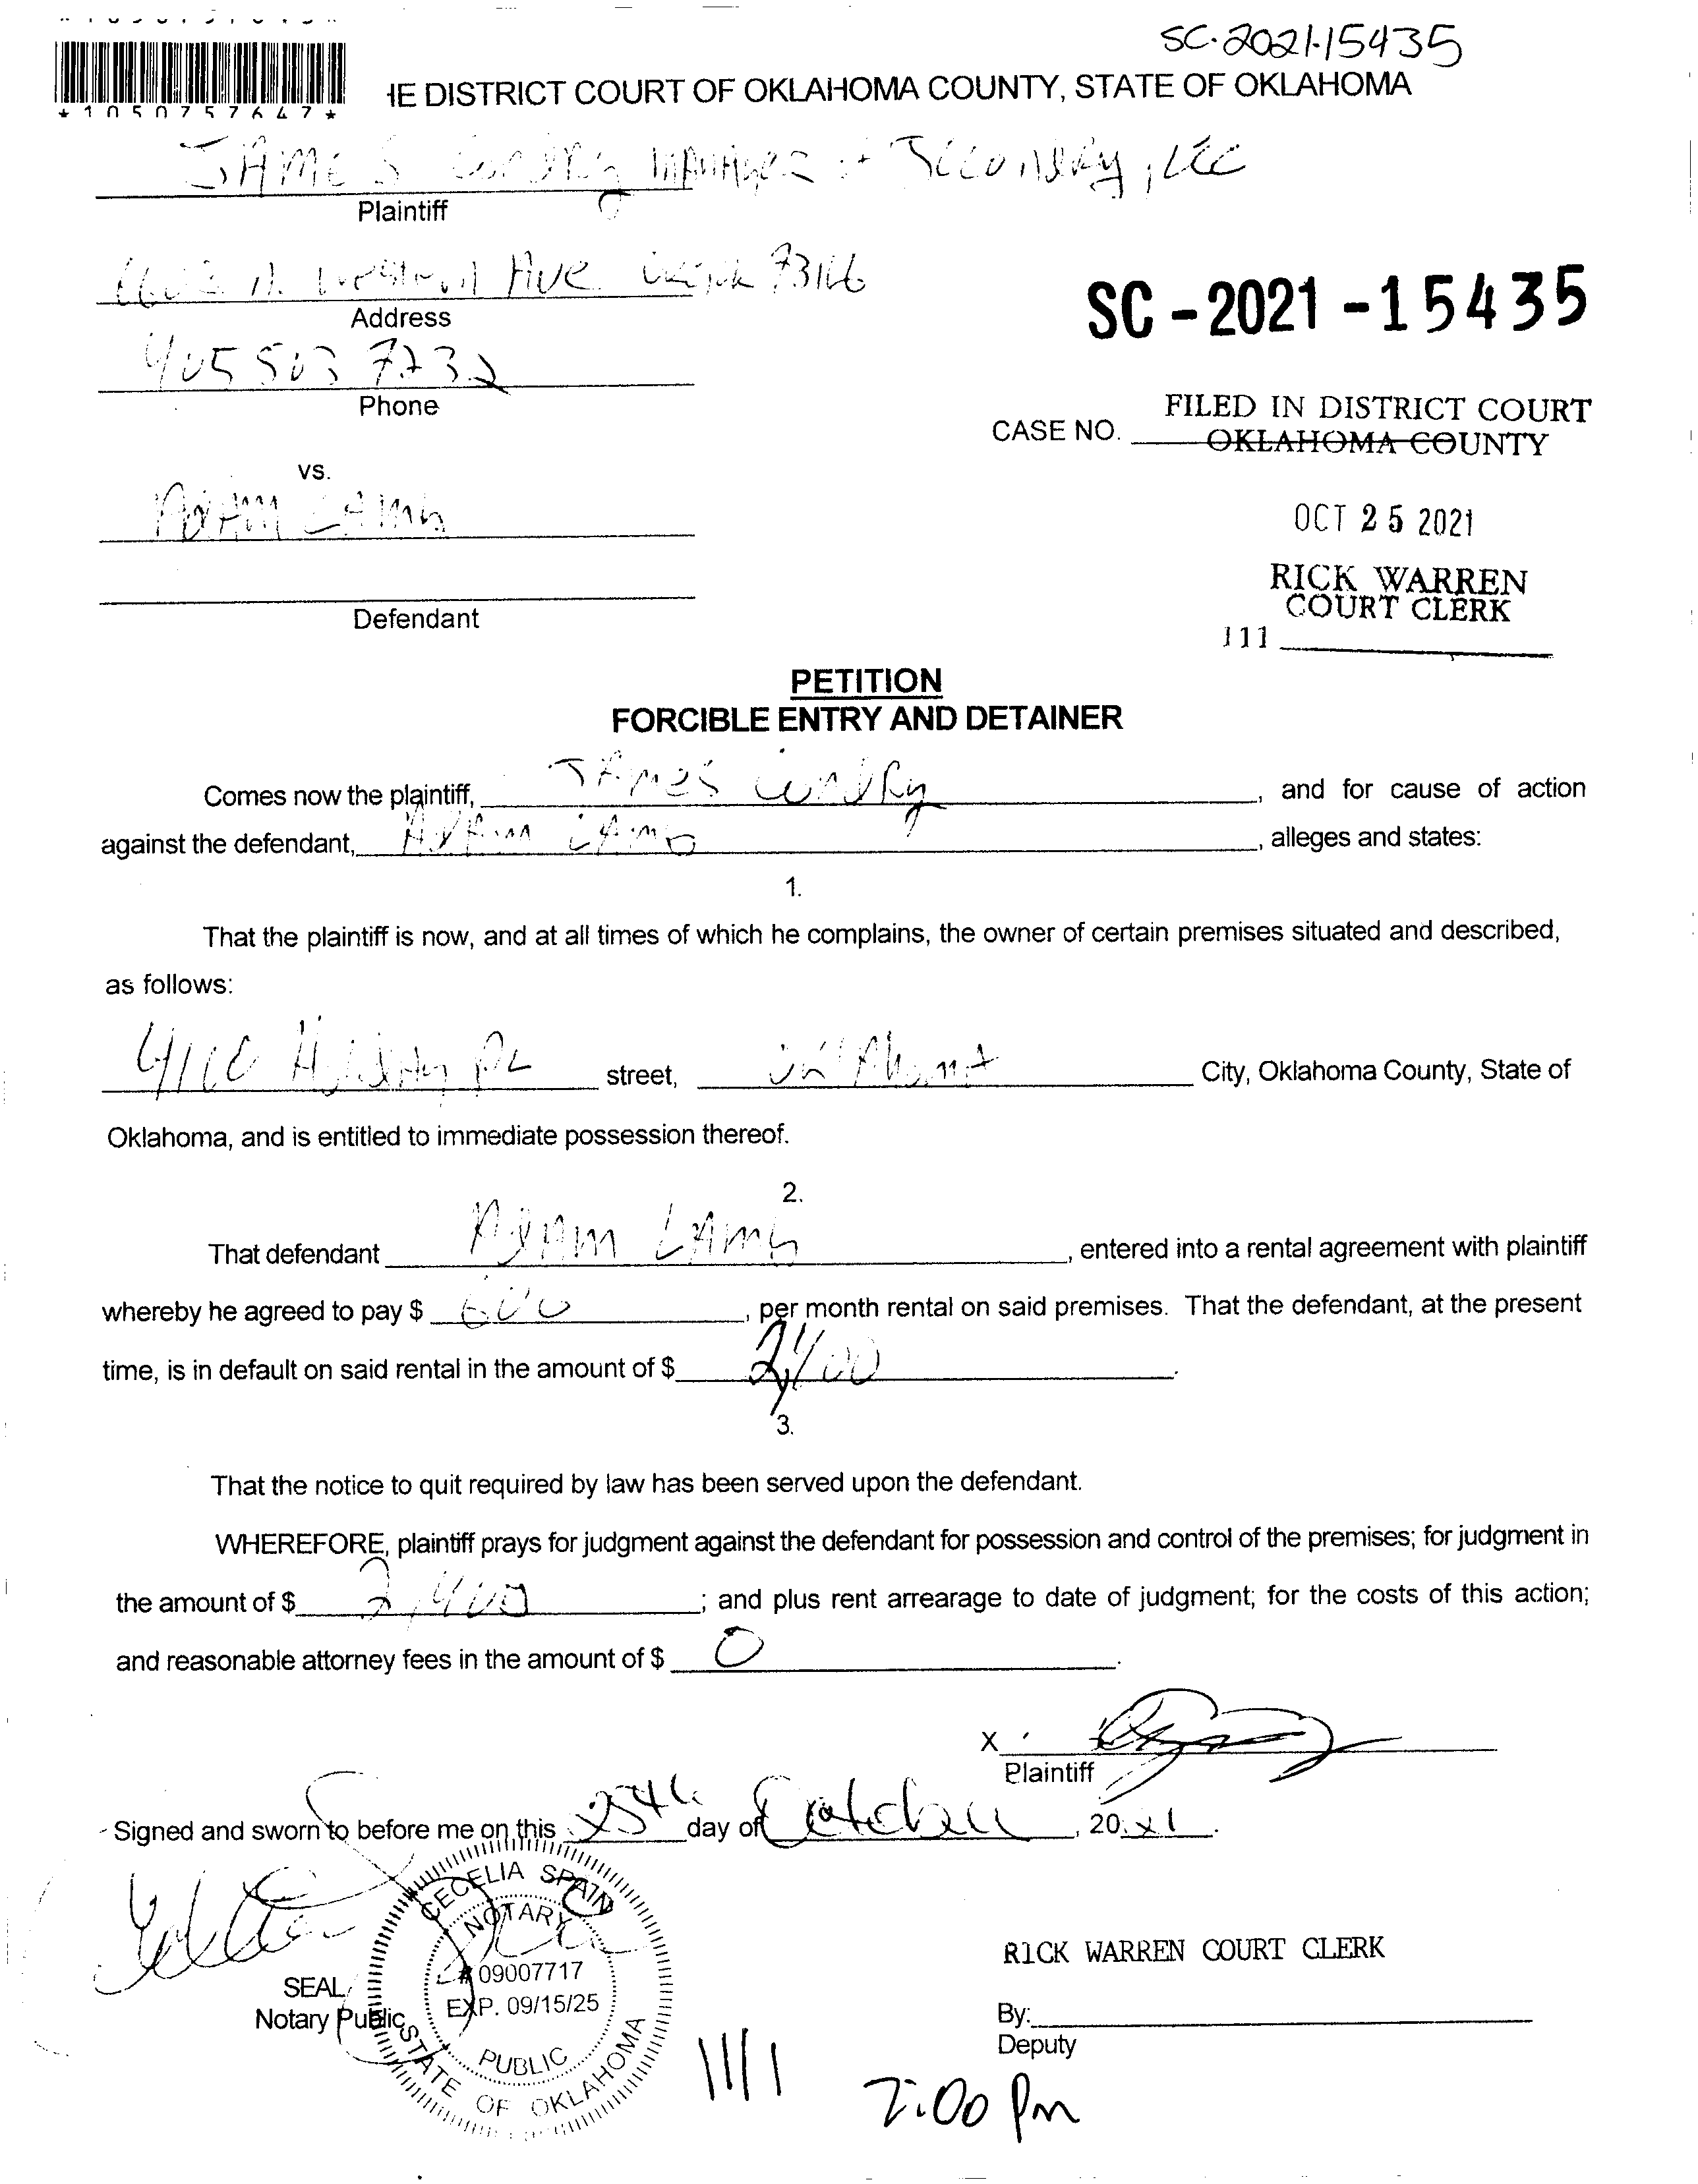 SC-2021-15435
*1050757647*
HE DISTRICT COURT OF OKLAHOMA COUNTY, STATE OF OKLAHOMA
JAMES Condry MANAger of JCCondRy, LLC
Plaintiff
N. Western AVE 73116
Address
405 503 7232
Phone
SC-2021-15435
FILED IN DISTRICT COURT
CASE NO. OKLAHOMA COUNTY
vs.
ADAM LAMb
OCT 25 2021
RICK WARREN
COURT CLERK
Defendant
111
PETITION
FORCIBLE ENTRY AND DETAINER
Comes now the plaintiff, JAmes CondRy, and for cause of action
against the defendant, ADAM LAMb, alleges and states:
1.
That the plaintiff is now, and at all times of which he complains, the owner of certain premises situated and described,
as follows:
PL street, OklAhomA City, Oklahoma County, State of
Oklahoma, and is entitled to immediate possession thereof.
2.
That defendant ADAM LAMb, entered into a rental agreement with plaintiff
whereby he agreed to pay $ 600, per month rental on said premises. That the defendant, at the present
time, is in default on said rental in the amount of $ 2,400.
3.
That the notice to quit required by law has been served upon the defendant.
WHEREFORE, plaintiff prays for judgment against the defendant for possession and control of the premises; for judgment in
the amount of $ 2,400; and plus rent arrearage to date of judgment; for the costs of this action;
and reasonable attorney fees in the amount of $ 0.
X
Plaintiff
Signed and sworn to before me on this 25th day of October, 2021.
CECELIA SPAIN
NOTARY
# 09007717
EXP. 09/15/25
PUBLIC
STATE OF OKLAHOMA
SEAL
Notary Public
RICK WARREN COURT CLERK
By:
Deputy
11/1
2:00 Pm